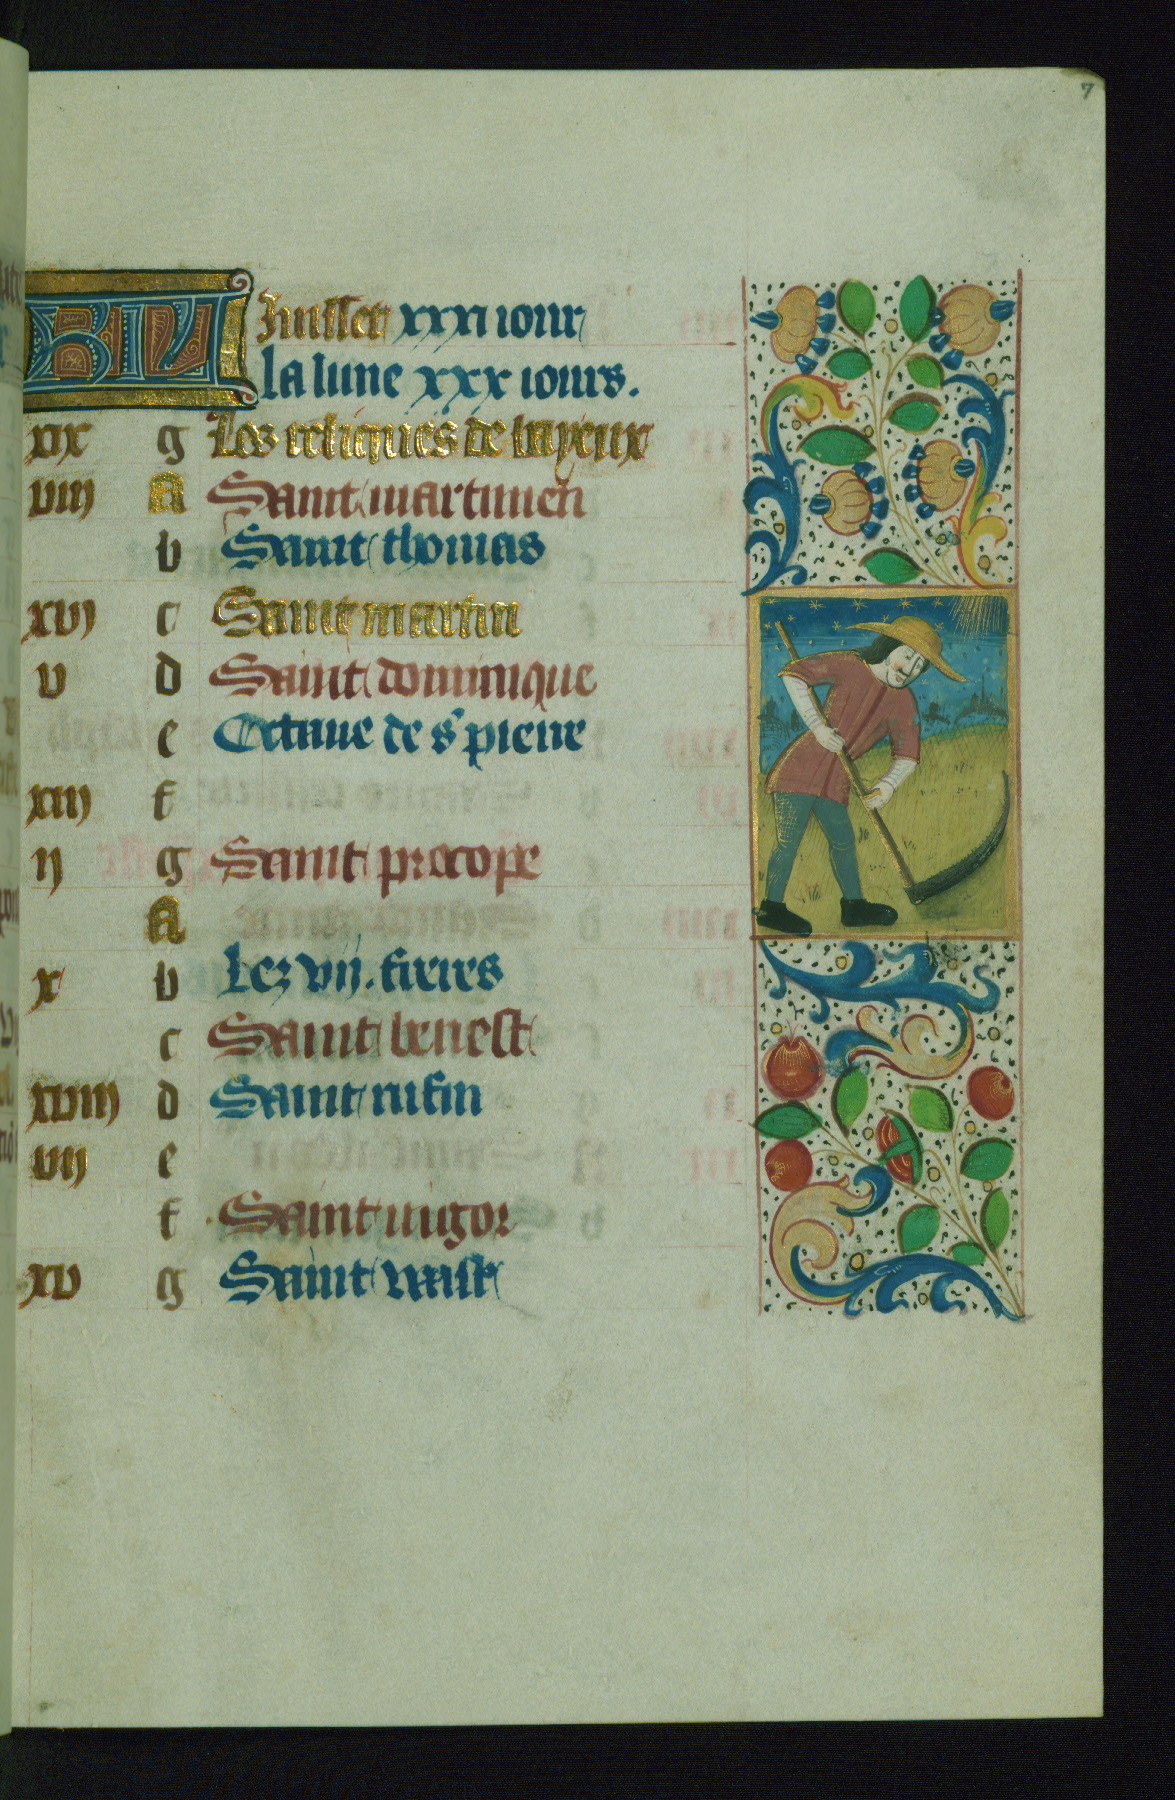 7
KL Juillet xxxi iour
la lune xxx iours.
xix g Les reliques de bayeux
viii A Saint martinien
b Saint thomas
xvi c Saint martin
v d Saint dominique
e Octaue de s pierre
xiii f
ii g Saint procope
A
x b Lez vii. freres
c Saint benest
xviii d Saint rufin
vii e
f Saint vigor
xv g Saint vaast